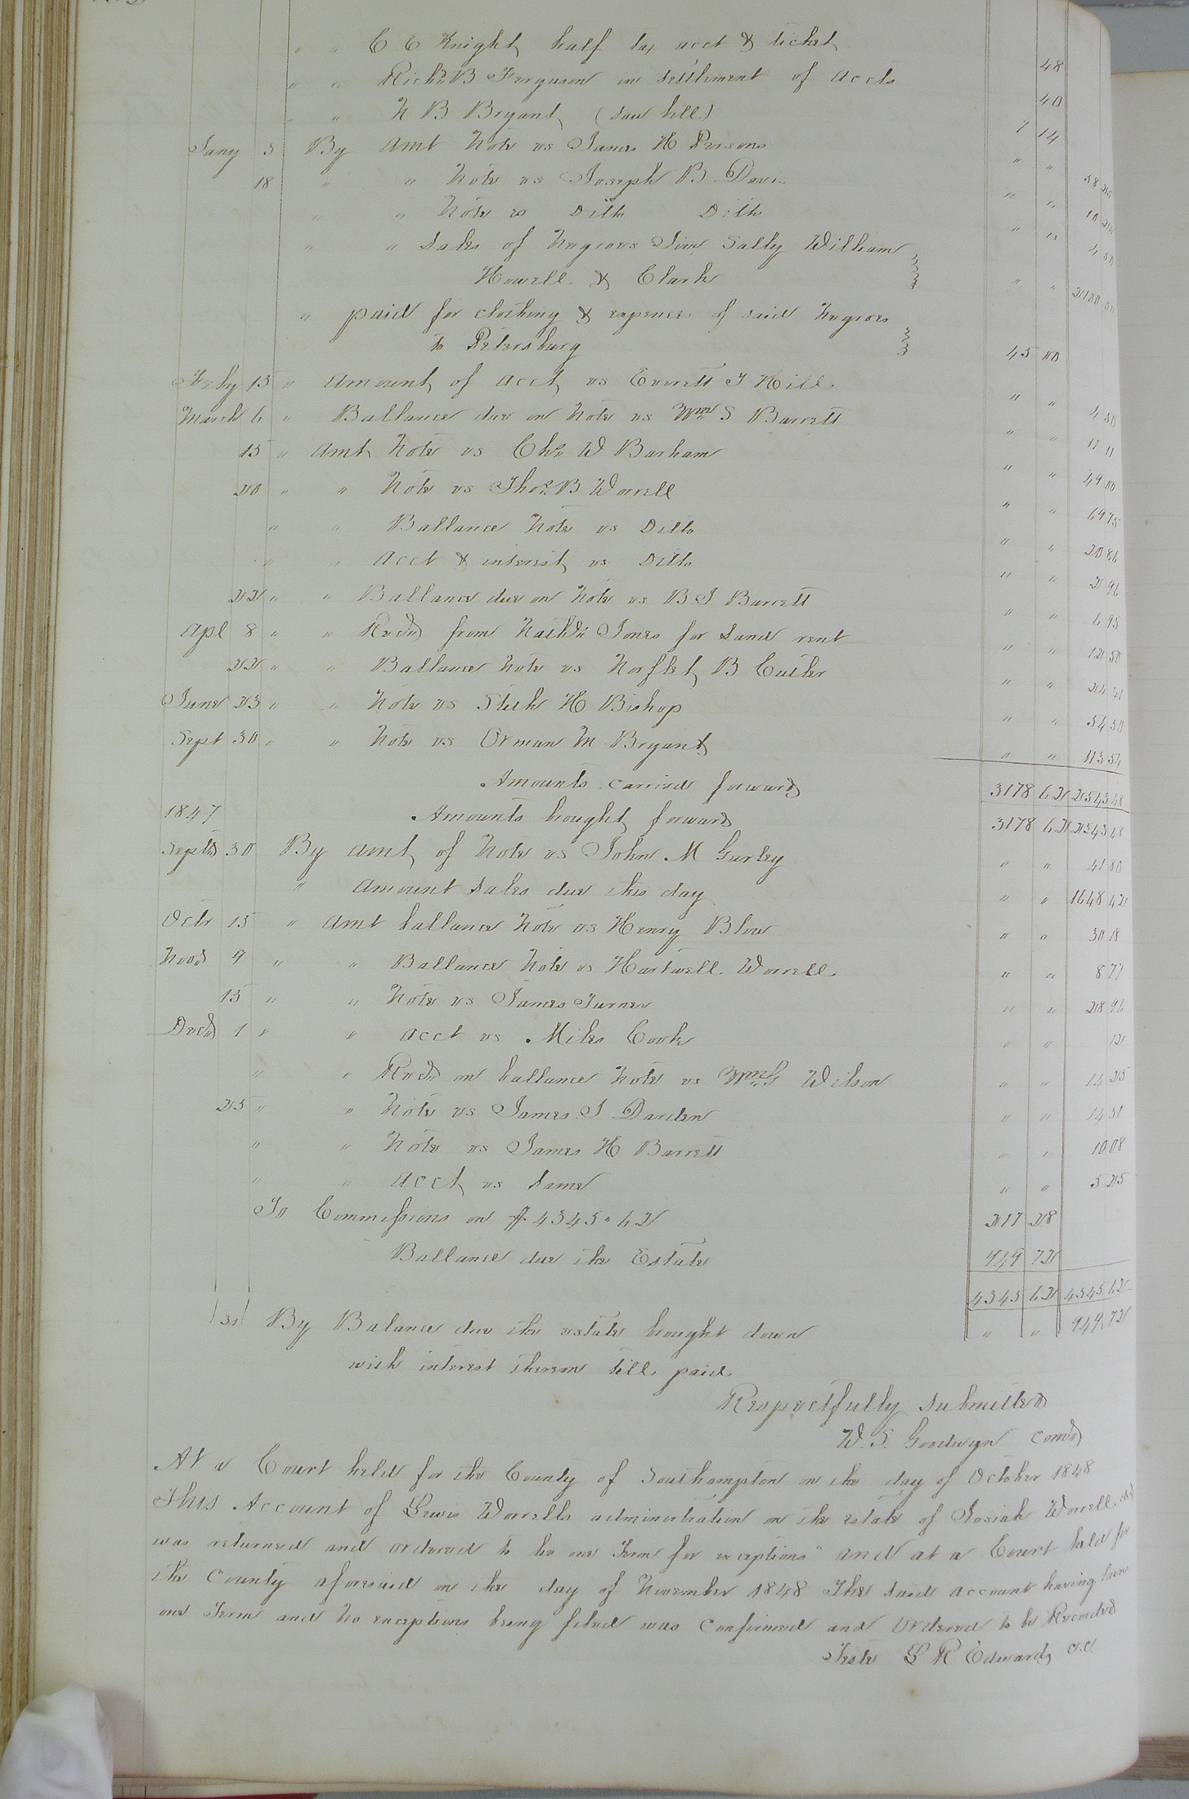 " " C C Knight half tax acct & ticket 48
" " Richd B Ferguson in settlement of accts 40
" " N B Bryant (Saw bill) 7 14
Jany 5 By Amt Note vs James H Persons " "
18 " " Note vs Joseph B Davis " "
" " Note vs Ditto Ditto " "
" " Sales of Negroes Jim Sally William
Howell & Clark " " 2100 00
" paid for clothing & expences of said Negroes
to Petersburg 45 00
Feby 15 " Amount of acct vs Everett J Hill " " 4 50
March 6 " Ballance due on Note vs Wm S Barrett " " 17 11
15 " Amt Note vs Chs W Barham " " 49 00
20 " " Note vs Thos B Worrell " " 69 75
" " Ballance Note vs Ditto " " 20 86
" " Acct & interest vs Ditto " " 2 96
22 " " Ballance due on Note vs B J Barrett " " 6 95
Apl 8 " " Recd from Jones for Land rent " " 12 50
22 " " Ballance Note vs Norflet B Cutler " "
June 23 " " Note vs Stith H Bishop " " 54 50
Sept 30 " " Note vs Orman M Bryant " " 113 54
Amounts carried forward 3178 62 2543 48
1847 Amounts bought forward 3178 62 2543 48
Septr 30 By Amt of Note vs John M Gurley " " 41 80
" Amount Sales due this day " " 1648 42
Octr 15 " Amt ballance Note vs Henry Blow " " 30 18
Novr 9 " " Ballance Note vs Hartwell Worrell " " 8 77
15 " " Note vs James Turner " " 28 96
Decr 1 " " Acct vs Miles Cook " " 12
" " Recd on ballance Note vs Wilson " " 14 25
25 " " Note vs James J Darden " " 14 31
" " Note vs James H Barrett " " 10 08
" " Acct vs Same " " 5 25
To Commissions on $4345.62 217 28
Ballance due the Estate 949 72
4345 62 4345 62
31 By Balance due the estate bought down " " 949.72
with interest thereon till paid
Respectfully submitted
W. S. Goodwyn Comr
At a Court held for the County of Southampton on the day of October 1848
This Account of Lewis Worrells administration on the estate of Josiah Worrell decd
was returned and ordered to lie one Term for exceptions" And at a Court held for
the County aforesaid on the day of November 1848 The said account having lain
one Term and No exceptions being filed was confirmed and Ordered to be Recorded
Teste L R Edwards C.C.